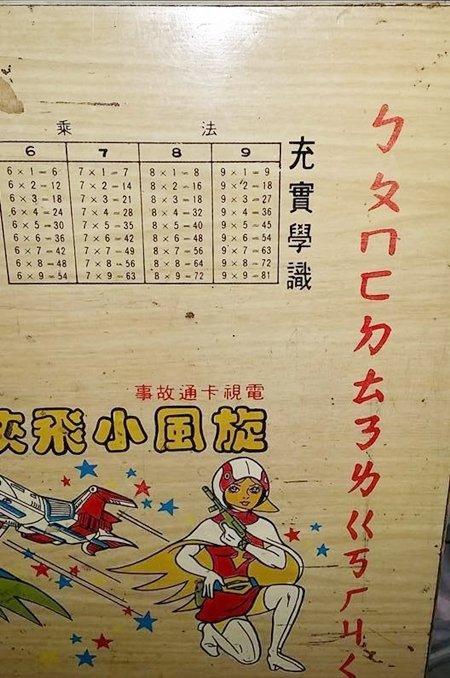 乘 法
6 7 8 9
6×1=6 7×1=7 8×1=8 9×1=9
6×2=12 7×2=14 8×2=16 9×2=18
6×3=18 7×3=21 8×3=24 9×3=27
6×4=24 7×4=28 8×4=32 9×4=36
6×5=30 7×5=35 8×5=40 9×5=45
6×6=36 7×6=42 8×6=48 9×6=54
6×7=42 7×7=49 8×7=56 9×7=63
6×8=48 7×8=56 8×8=64 9×8=72
6×9=54 7×9=63 8×9=72 9×9=81
充實學識
ㄅㄆㄇㄈㄉㄊㄋㄌㄍㄎㄏㄐㄑ
電視卡通故事
旋風小飛俠